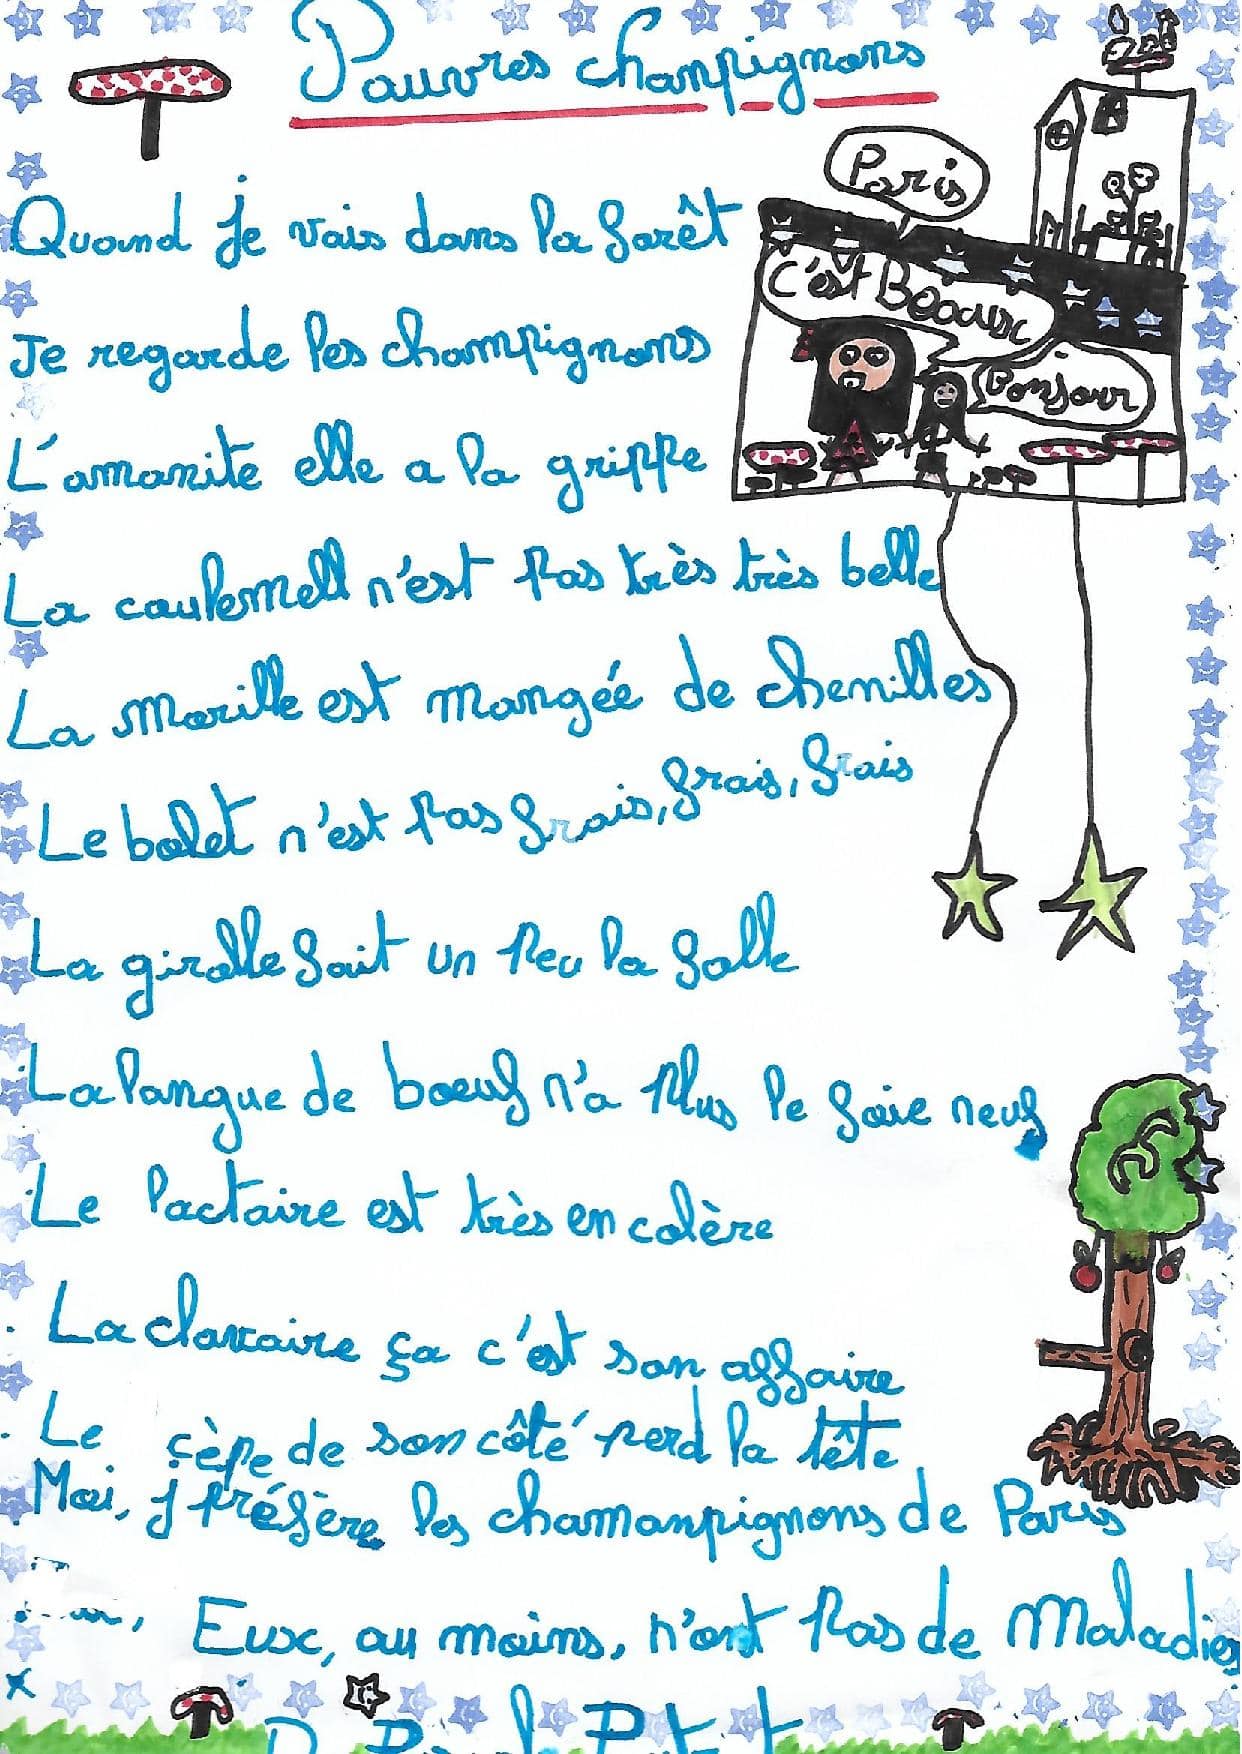 Pauvres chanpignons
Paris
Quand je vais dans la forêt
C'est Beaux
Je regarde les champignons
Bonjour
L'amanite elle a la grippe
La coulemell n'est pas très très belle
La morille est mangée de chenilles
Le bolet n'est pas frais, frais, frais
La girolle fait un peu la folle
La langue de boeuf n'a plus le foie neuf
Le lactaire est très en colère
La clavaire ça c'est son affaire
Le çèpe de son côté perd la tête
Moi, j préfère les chamanpignons de Paris
Eux, au moins, n'ont pas de Maladies